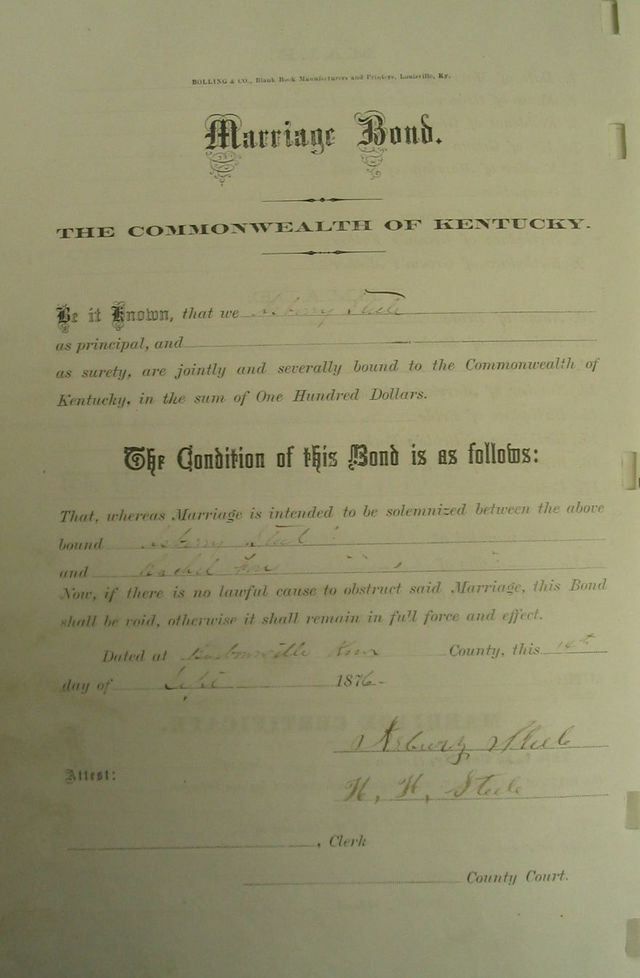 BOLLING & CO., Blank Book Manufacturers and Printers, Louisville, Ky.
Marriage Bond.
THE COMMONWEALTH OF KENTUCKY.
Be it Known, that we Asberry Steele
as principal, and
as surety, are jointly and severally bound to the Commonwealth of
Kentucky, in the sum of One Hundred Dollars.
The Condition of this Bond is as follows:
That, whereas Marriage is intended to be solemnized between the above
bound Asberry Steel
and Rachel
Now, if there is no lawful cause to obstruct said Marriage, this Bond
shall be void, otherwise it shall remain in full force and effect.
Dated at Barbourville Knox County, this 14th
day of Sept 1876-
Asbury Steele
Attest:
H. H. Steele
, Clerk
County Court.